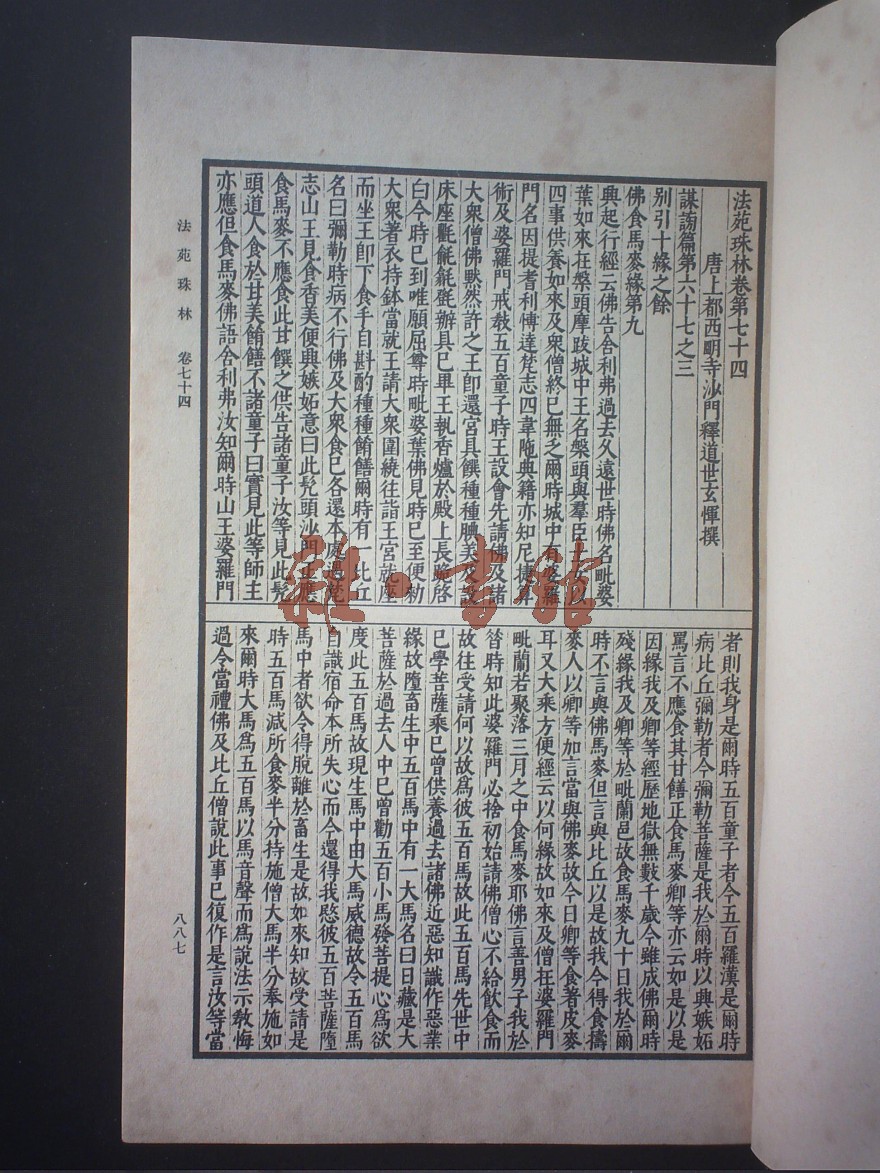 法苑珠林卷第七十四
唐上都西明寺沙門釋道世玄惲撰
謀謗篇第六十七之三
別引十緣之餘
佛食馬麥緣第九
興起行經云佛告舍利弗過去久遠世時佛名毗婆
葉如來在槃頭摩跋城中王名槃頭與羣臣
四事供養如來及衆僧終已無乏爾時城中有婆羅
門名因提耆利慱達梵志四韋陁典籍亦知尼揵
術及婆羅門戒敎五百童子時王設會先請佛及諸
大衆僧佛黙然許之王卽還宮具饌種種腆美及設
床座氍毹毾㲪辦具已畢王執香爐於殿上長跪啓
白今時已到唯願屈尊時毗婆葉佛見時已至便勑
大衆著衣持鉢當就王請大衆圍繞往詣王宮就座
而坐王卽下食手自斟酌種種餚饍爾時有一比丘
名曰彌勒時病不行佛及大衆食已各還本處過梵
志山王見食香美便興嫉妬意曰此髠頭沙門正應
食馬麥不應食此甘饌之供告諸童子汝等見此髠
頭道人食於甘美餚饍不諸童子曰實見此等師主
亦應但食馬麥佛語舍利弗汝知爾時山王婆羅門
者則我身是爾時五百童子者今五百羅漢是爾時
病比丘彌勒者今彌勒菩薩是我於爾時以興嫉妬
罵言不應食其甘饍正食馬麥卿等亦云如是以是
因緣我及卿等經歷地獄無數千歲今雖成佛爾時
殘緣我及卿等於毗蘭邑故食馬麥九十日我於爾
時不言與佛馬麥但言與比丘以是故我今得食擣
麥人以卿等加言當與佛麥故今日卿等食著皮麥
耳又大乘方便經云以何緣故如來及僧在婆羅門
毗蘭若聚落三月之中食馬麥耶佛言善男子我於
昔時知此婆羅門必捨初始請佛僧心不給飲食而
故往受請何以故爲彼五百馬故此五百馬先世中
已學菩薩乘已曾供養過去諸佛近惡知識作惡業
緣故墮畜生中五百馬中有一大馬名曰日藏是大
菩薩於過去人中已曾勸五百小馬發菩提心爲欲
度此五百馬故現生馬中由大馬威德故令五百馬
自識宿命本所失心而今還得我愍彼五百菩薩墮
馬中者欲令得脫離於畜生是故如來知故受請是
時五百馬減所食麥半分持施僧大馬半分奉施如
來爾時大馬爲五百馬以馬音聲而爲說法示敎悔
過令當禮佛及比丘僧說此事已復作是言汝等當
法苑珠林　卷七十四
八八七
雜·書館